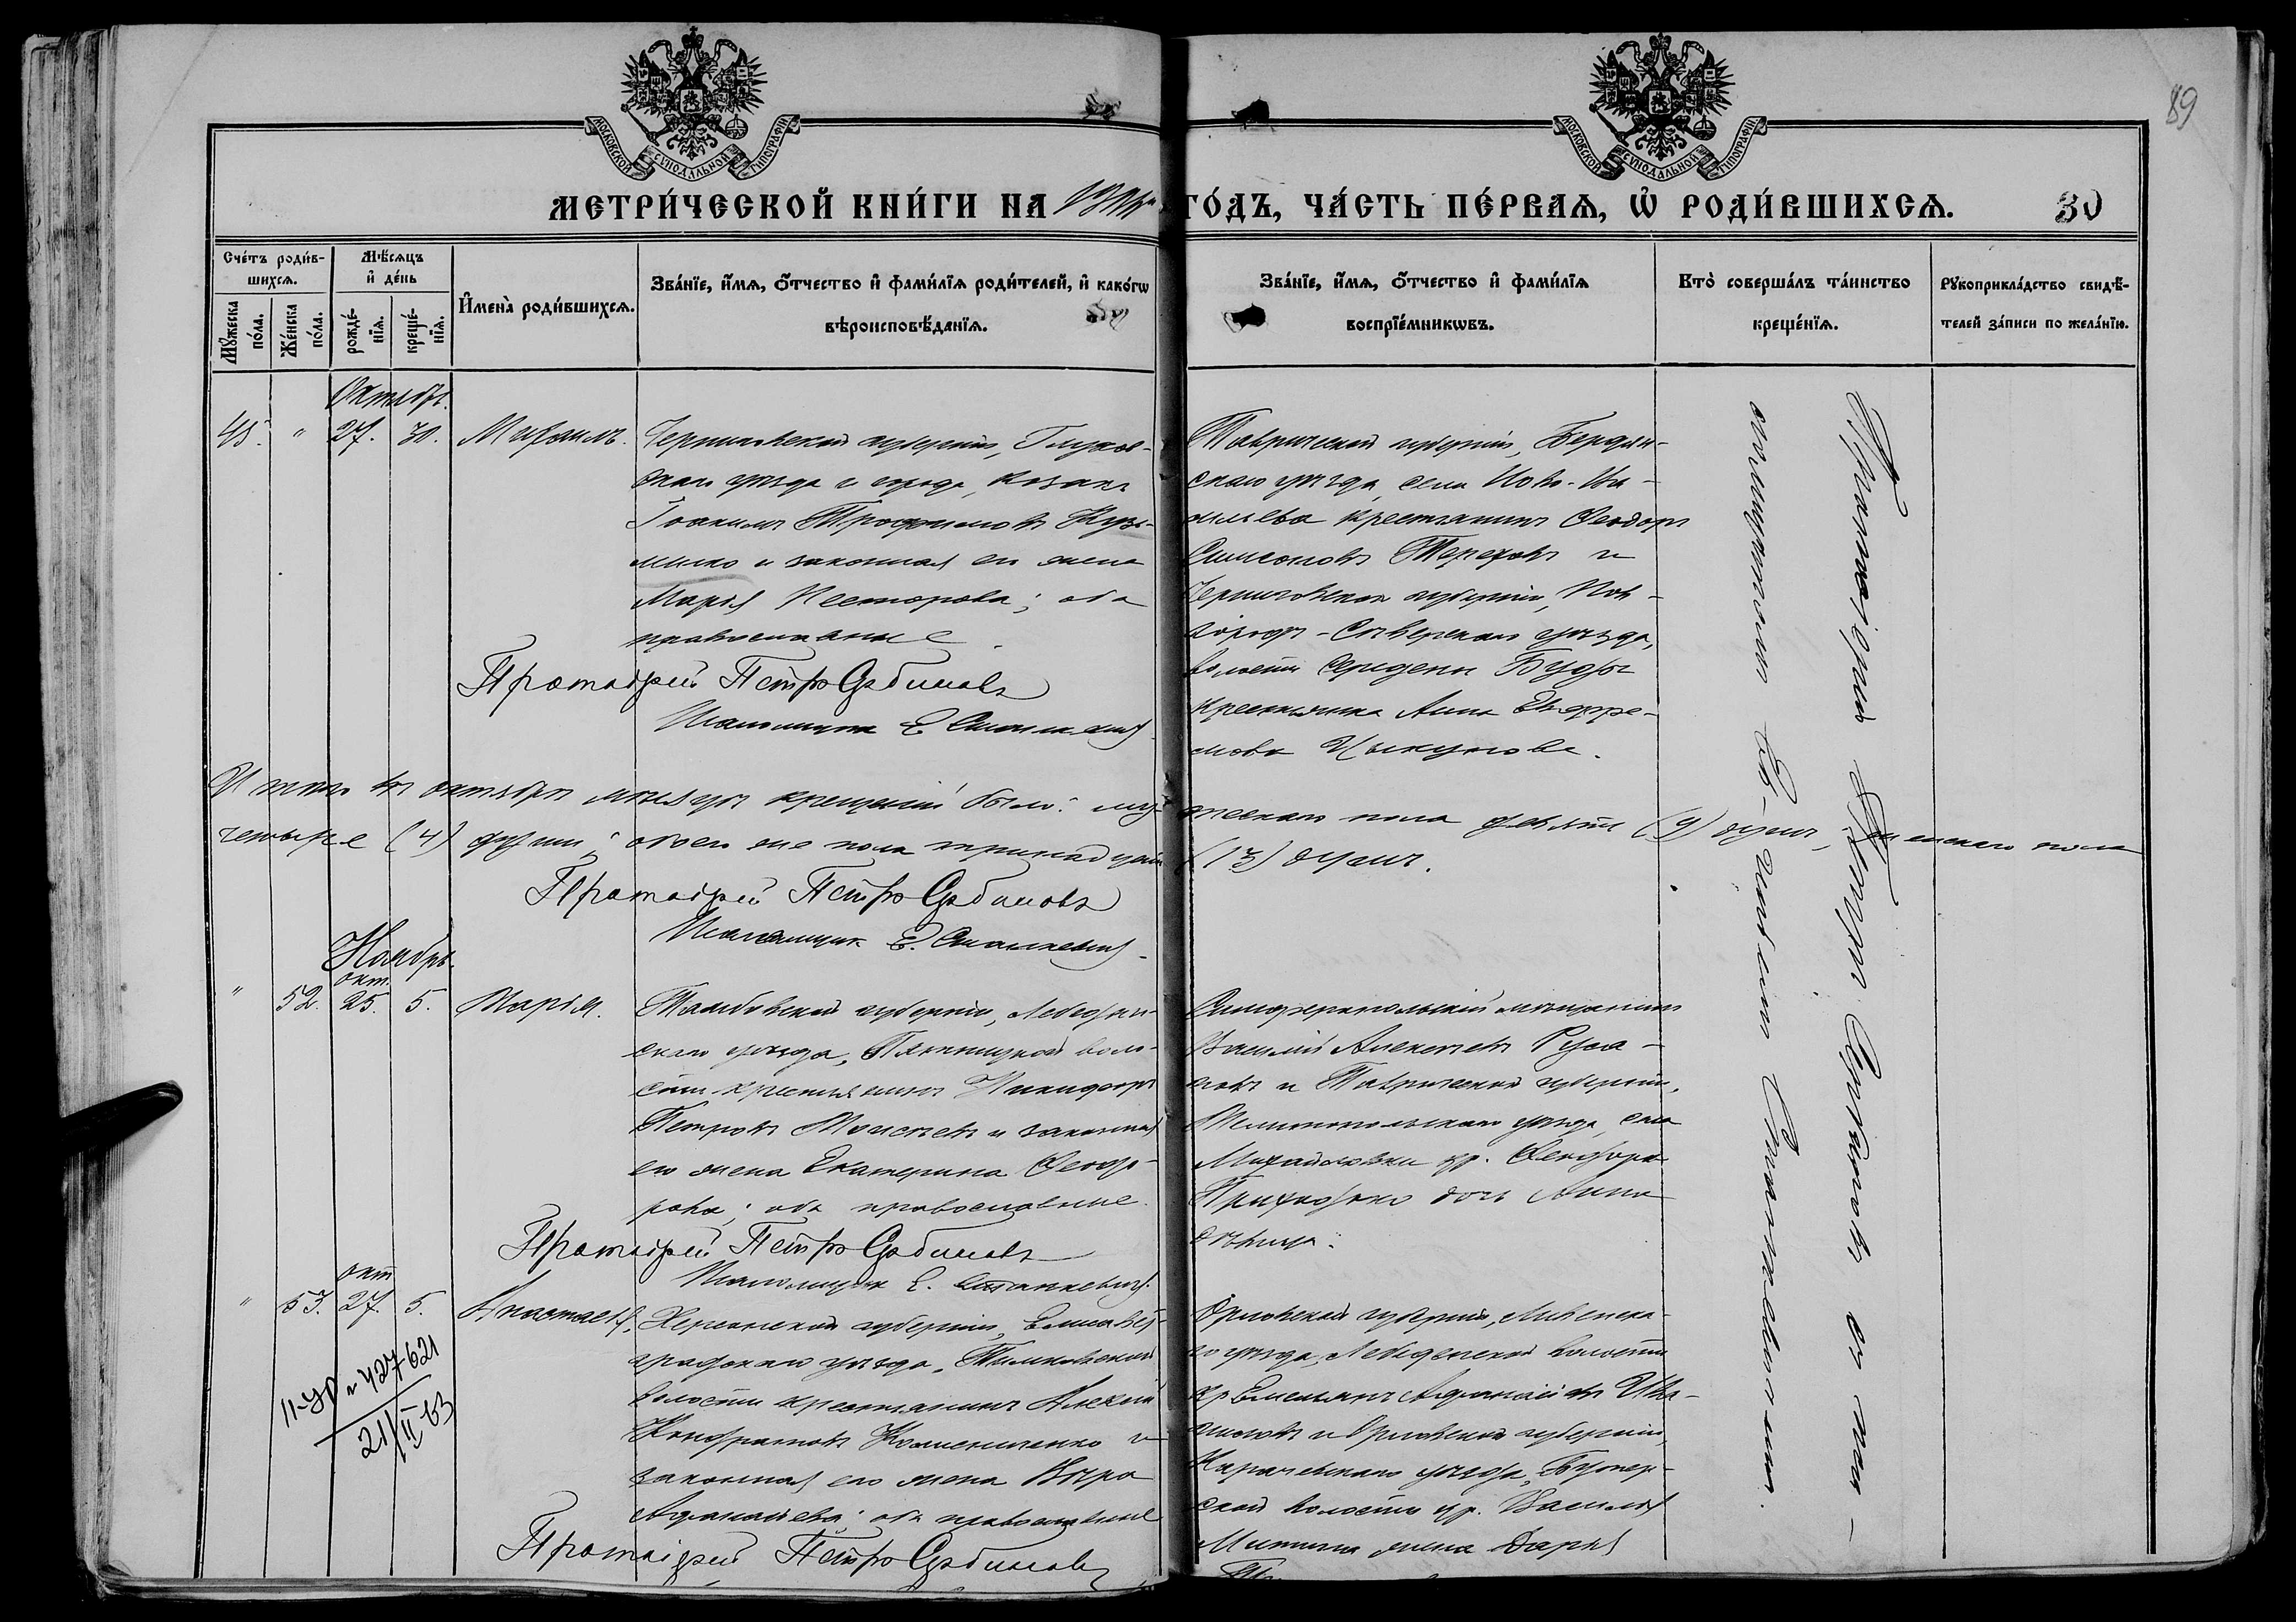 89
МОСКОВСКОЙ СѴНОДАЛЬНОЙ ТИПОГРАФІИ
МОСКОВСКОЙ СѴНОДАЛЬНОЙ ТИПОГРАФІИ
МЕТРИ́ЧЕСКОЙ КНИ́ГИ НА
ГО́ДЪ, ЧА́СТЬ ПЕ́РВАЯ, Ѽ РОДИ́ВШИХСЯ.
30
Сче́тъ роди́в-
шихся.
Мꙋ́жеска по́ла.
Же́нска по́ла.
Мѣ́сяцъ и де́нь
рожде́-
нїя.
креще́-
нїя.
Имена̀ роди́вшихся.
Зва́нїе, и́мя, о́тчество и фами́лїя роди́телей, и како́гѡ
вѣроисповѣ́данїя.
Зва́нїе, и́мя, о́тчество и фами́лїя
воспрїе́мникѡвъ.
Кто̀ соверша́лъ та́инство
креще́нїя.
Рꙋкоприкла́дство свидѣ́-
телей за́писи по жела́нїю.
Октябрь.
45. " 27. 30. Михаилъ.
Черниговской губерніи, Глухов-
скаго уѣзда и города, козакъ
Іоакимъ Трофимовъ Кузь-
менко и законная его жена
Марія Несторова; оба
православные.
Протоіерей Петръ Сербиновъ
Псаломщикъ Е. Станкевичъ.
Таврической губерніи, Бердян-
скаго уѣзда, села Ново-Ва-
сильевка крестьянинъ Ѳеодоръ
Симеоновъ Тереховъ и
Черниговской губерніи, Нов-
городъ-Сѣверскаго уѣзда,
волости Середины Буды
крестьянка Анна Евфре-
мова Цыкунова.
Протоіерей Петръ Сербиновъ съ пса-
ломщикомъ Ев. Станкевичемъ.
Итого въ октябрѣ мѣсяцѣ крещеній было: му-
жескаго пола девять (9) душъ, женскаго пола
четыре (4) души; обоего же пола тринадцать
(13) душъ.
Протоіерей Петръ Сербиновъ
Псаломщикъ Е. Станкевичъ.
Ноябрь.
окт.
" 52. 25. 5. Марія.
Тамбовской губерніи, Лебедян-
скаго уѣзда, Пятницкой воло-
сти крестьянинъ Никифоръ
Петровъ Моисеевъ и законная
его жена Екатерина Ѳеодо-
рова; оба православные.
Протоіерей Петръ Сербиновъ
Псаломщикъ Е. Станкевичъ.
Симферопольскій мѣщанинъ
Василій Алексѣевъ Руса-
ковъ и Таврической губерніи,
Мелитопольскаго уѣзда, села
Михайловки кр. Ѳеодора
Приходько дочь Анна
дѣвица.
окт
" 53. 27. 5. Анастасія.
Херсонской губерніи, Елисавет-
градскаго уѣзда,
волости крестьянинъ Алексій
Кондратовъ Коломийченко и
законная его жена Вѣра
Афанасіева; оба православные
Протоіерей Петръ Сербиновъ
Орловской губерніи, Ливенска-
го уѣзда, волости
кр. Емельянъ Афанасіевъ Ива-
и Орловской губерніи,
Карачевскаго уѣзда,
ской волости кр. Василія
Митина жена Дарья
II-УР № 427621
21/II-63